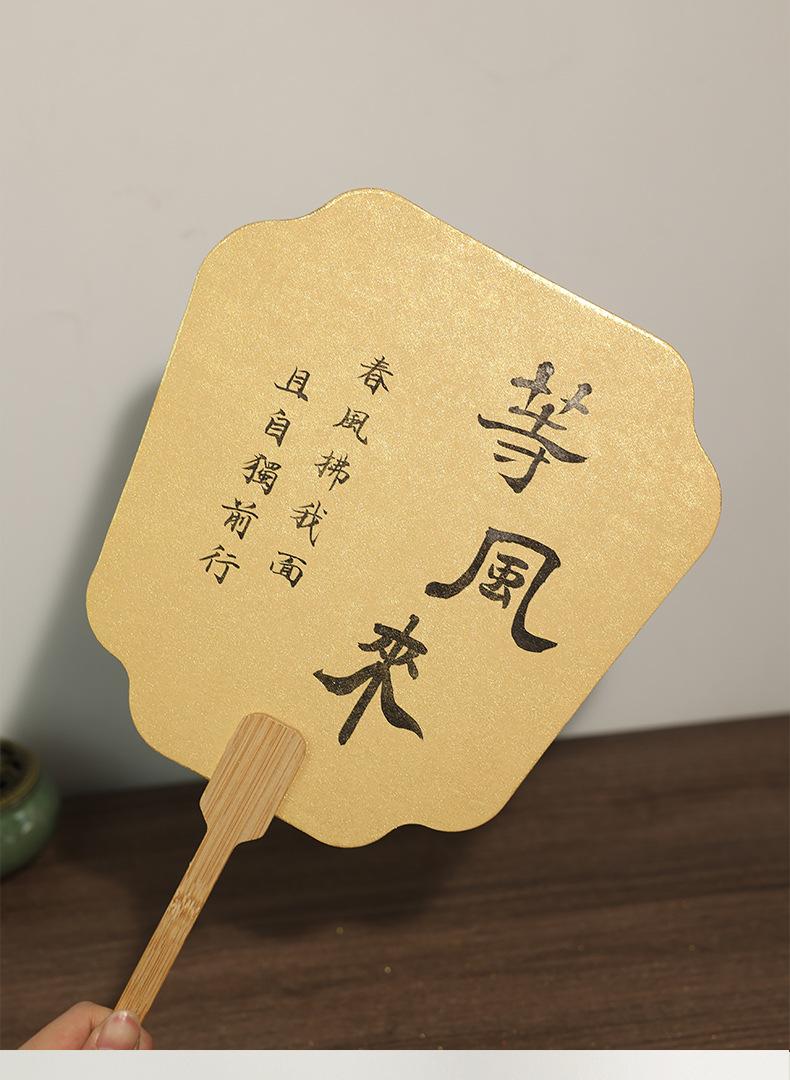 等風來
春風拂我面
且自獨前行